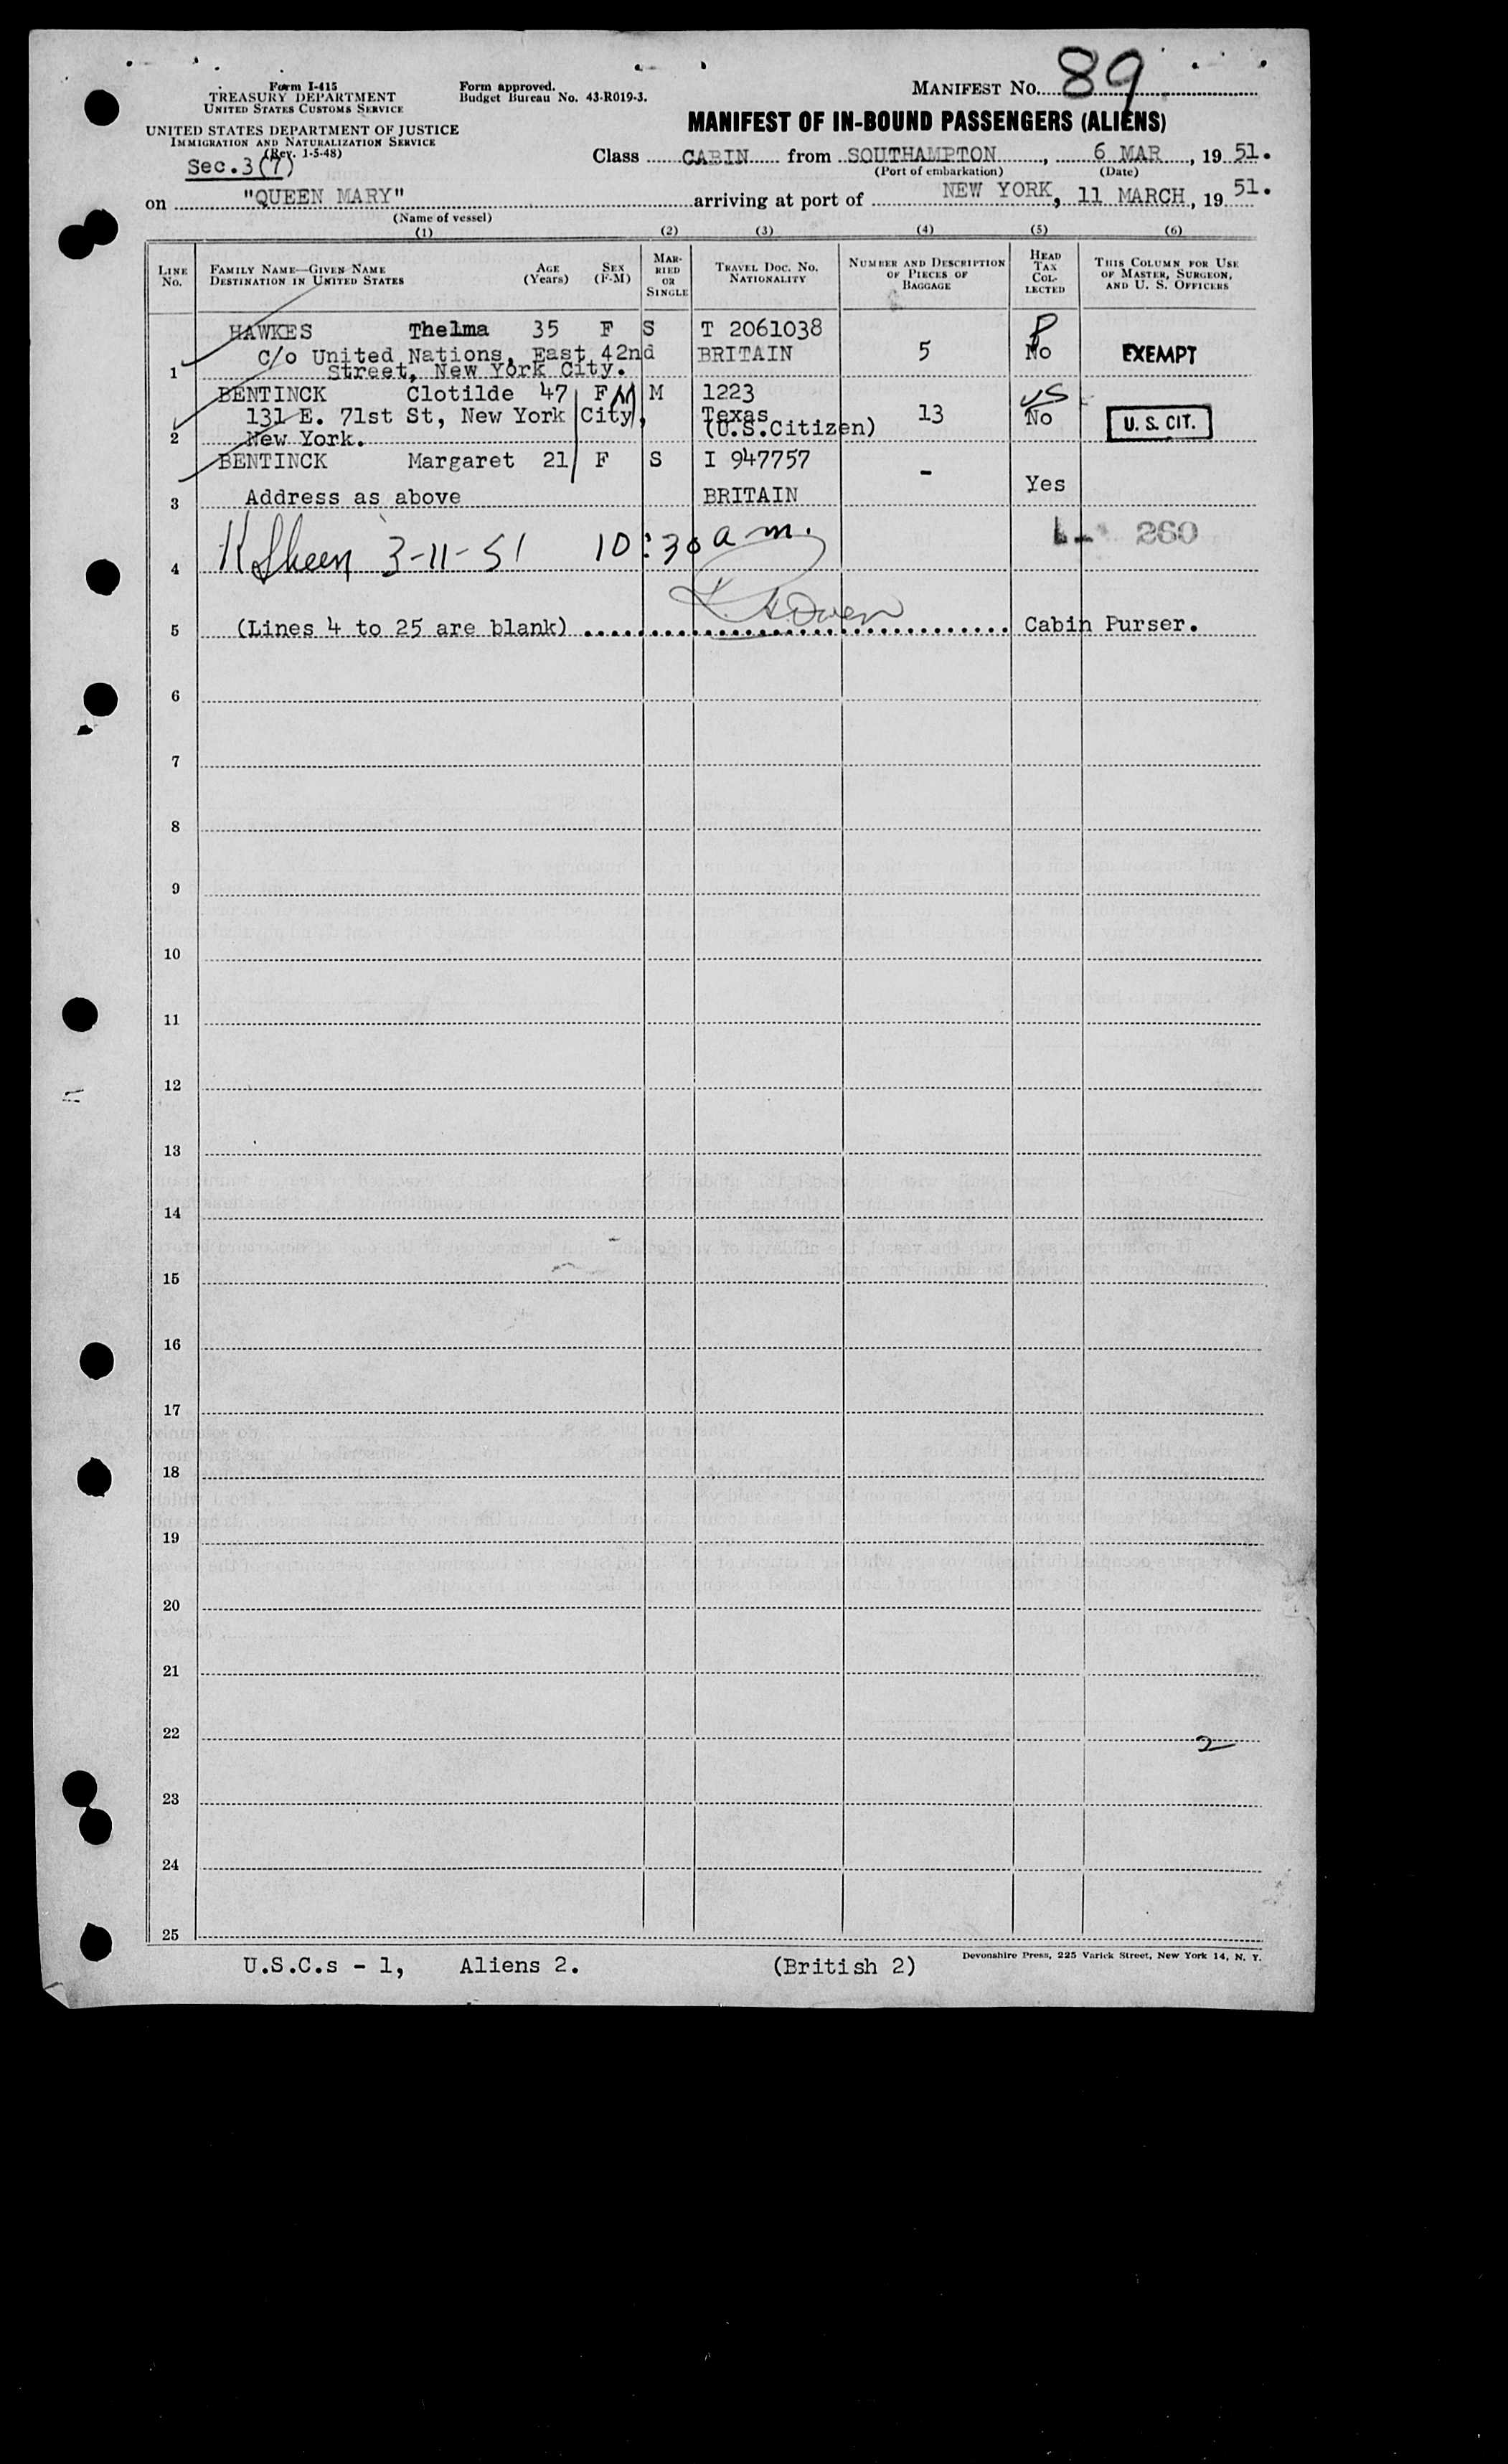 Form I-415
TREASURY DEPARTMENT
UNITED STATES CUSTOMS SERVICE
UNITED STATES DEPARTMENT OF JUSTICE
IMMIGRATION AND NATURALIZATION SERVICE
(Rev. 1-5-48)
Sec.3(7)
Form approved.
Budget Bureau No. 43-R019-3.
MANIFEST No. 89
MANIFEST OF IN-BOUND PASSENGERS (ALIENS)
Class CABIN from SOUTHAMPTON, 6 MAR, 19 51.
(Port of embarkation) (Date)
on "QUEEN MARY" arriving at port of NEW YORK, 11 MARCH, 19 51.
(Name of vessel)
(1) (2) (3) (4) (5) (6)
LINE No. FAMILY NAME—GIVEN NAME DESTINATION IN UNITED STATES AGE (Years) SEX (F-M) MARRIED OR SINGLE TRAVEL DOC. NO. NATIONALITY NUMBER AND DESCRIPTION OF PIECES OF BAGGAGE HEAD TAX COLLECTED THIS COLUMN FOR USE OF MASTER, SURGEON, AND U. S. OFFICERS
HAWKES Thelma 35 F S T 2061038 P
C/o United Nations, East 42nd BRITAIN 5 No EXEMPT
1 Street, New York City.
BENTINCK Clotilde 47 F M M 1223 US
131 E. 71st St, New York City, Texas 13 No U. S. CIT.
2 New York. (U.S.Citizen)
BENTINCK Margaret 21 F S I 947757 -
3 Address as above BRITAIN Yes
4 3-11-51 10:30 a.m. 260
5 (Lines 4 to 25 are blank) Cabin Purser.
6
7
8
9
10
11
12
13
14
15
16
17
18
19
20
21
22 2
23
24
25
U.S.C.s - 1, Aliens 2. (British 2)
Devonshire Press, 225 Varick Street, New York 14, N. Y.